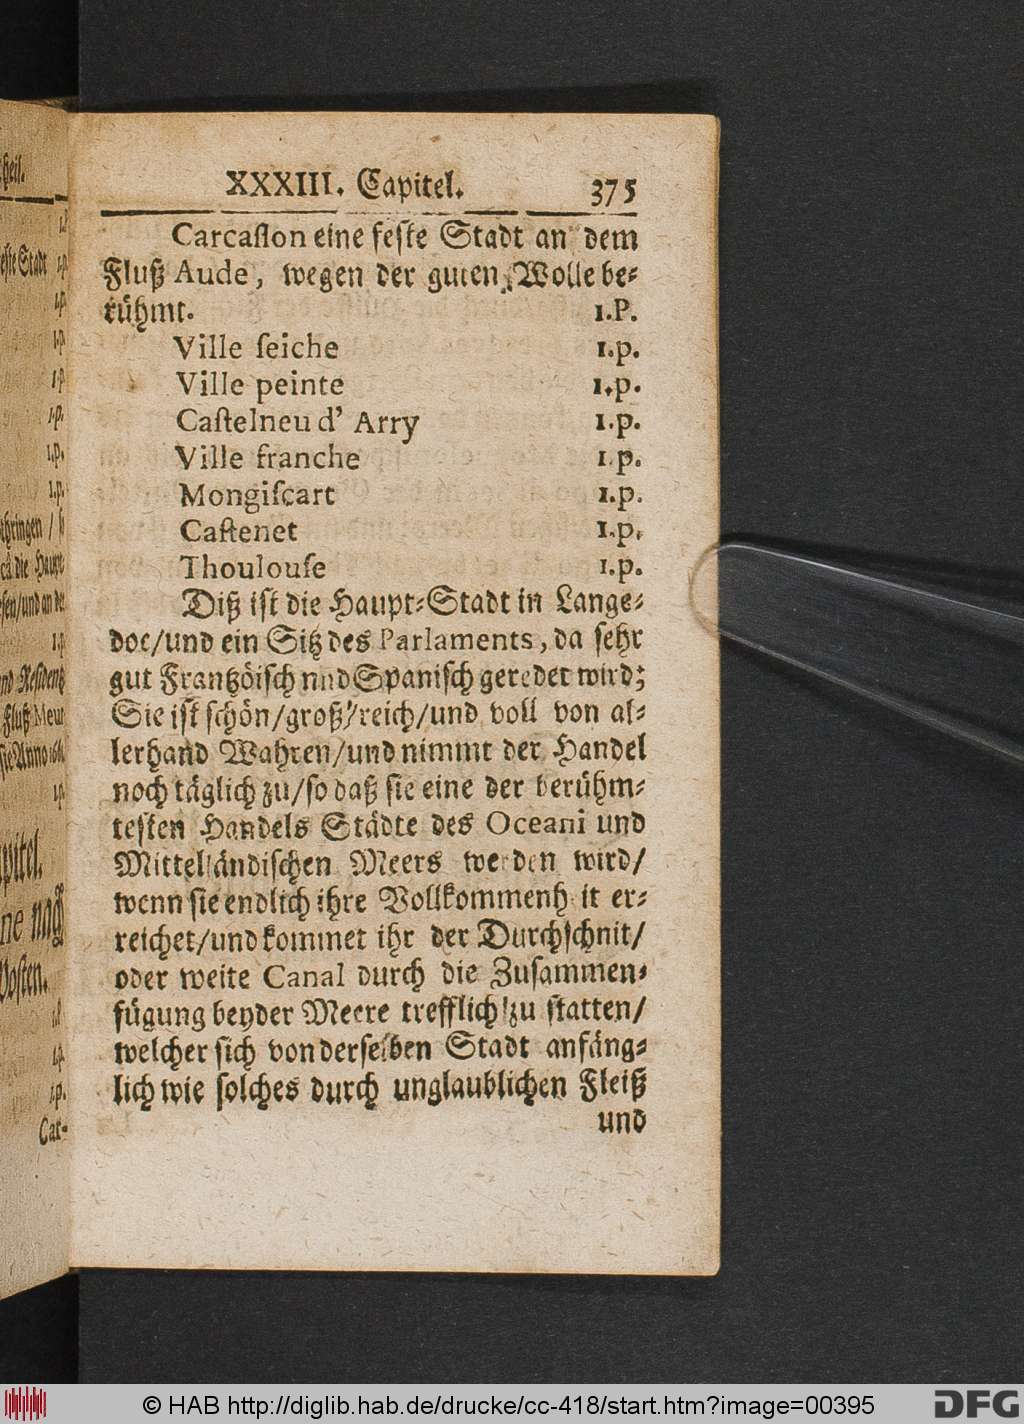 XXXIII. Capitel. 375
Carcaſſon eine feſte Stadt an dem
Fluß Aude, wegen der guten Wolle be-
rühmt. 1.P.
Ville ſeiche 1.p.
Ville peinte 1.p.
Caſtelneu d' Arry 1.p.
Ville franche 1.p.
Mongiſcart 1.p.
Caſtenet 1.p.
Thoulouſe 1.p.
Diß iſt die Haupt-Stadt in Lange-
doc/und ein Sitz des Parlaments, da ſehr
gut Frantzöiſch nnd Spaniſch geredet wird;
Sie iſt ſchön/groß/reich/und voll von al-
lerhand Wahren/und nimmt der Handel
noch täglich zu/ſo daß ſie eine der berühm-
teſten Handels Städte des Oceani und
Mittelländiſchen Meers werden wird/
wenn ſie endlich ihre Vollkommenh it er-
reichet/und kommet ihr der Durchſchnit/
oder weite Canal durch die Zuſammen-
fügung beyder Meere trefflich zu ſtatten/
welcher ſich von derſelben Stadt anfäng-
lich wie ſolches durch unglaublichen Fleiß
und
heil.
1.p.
1.p.
1.p.
1.p.
1.p.
1.p.
Car-
© HAB http://diglib.hab.de/drucke/cc-418/start.htm?image=00395
DFG